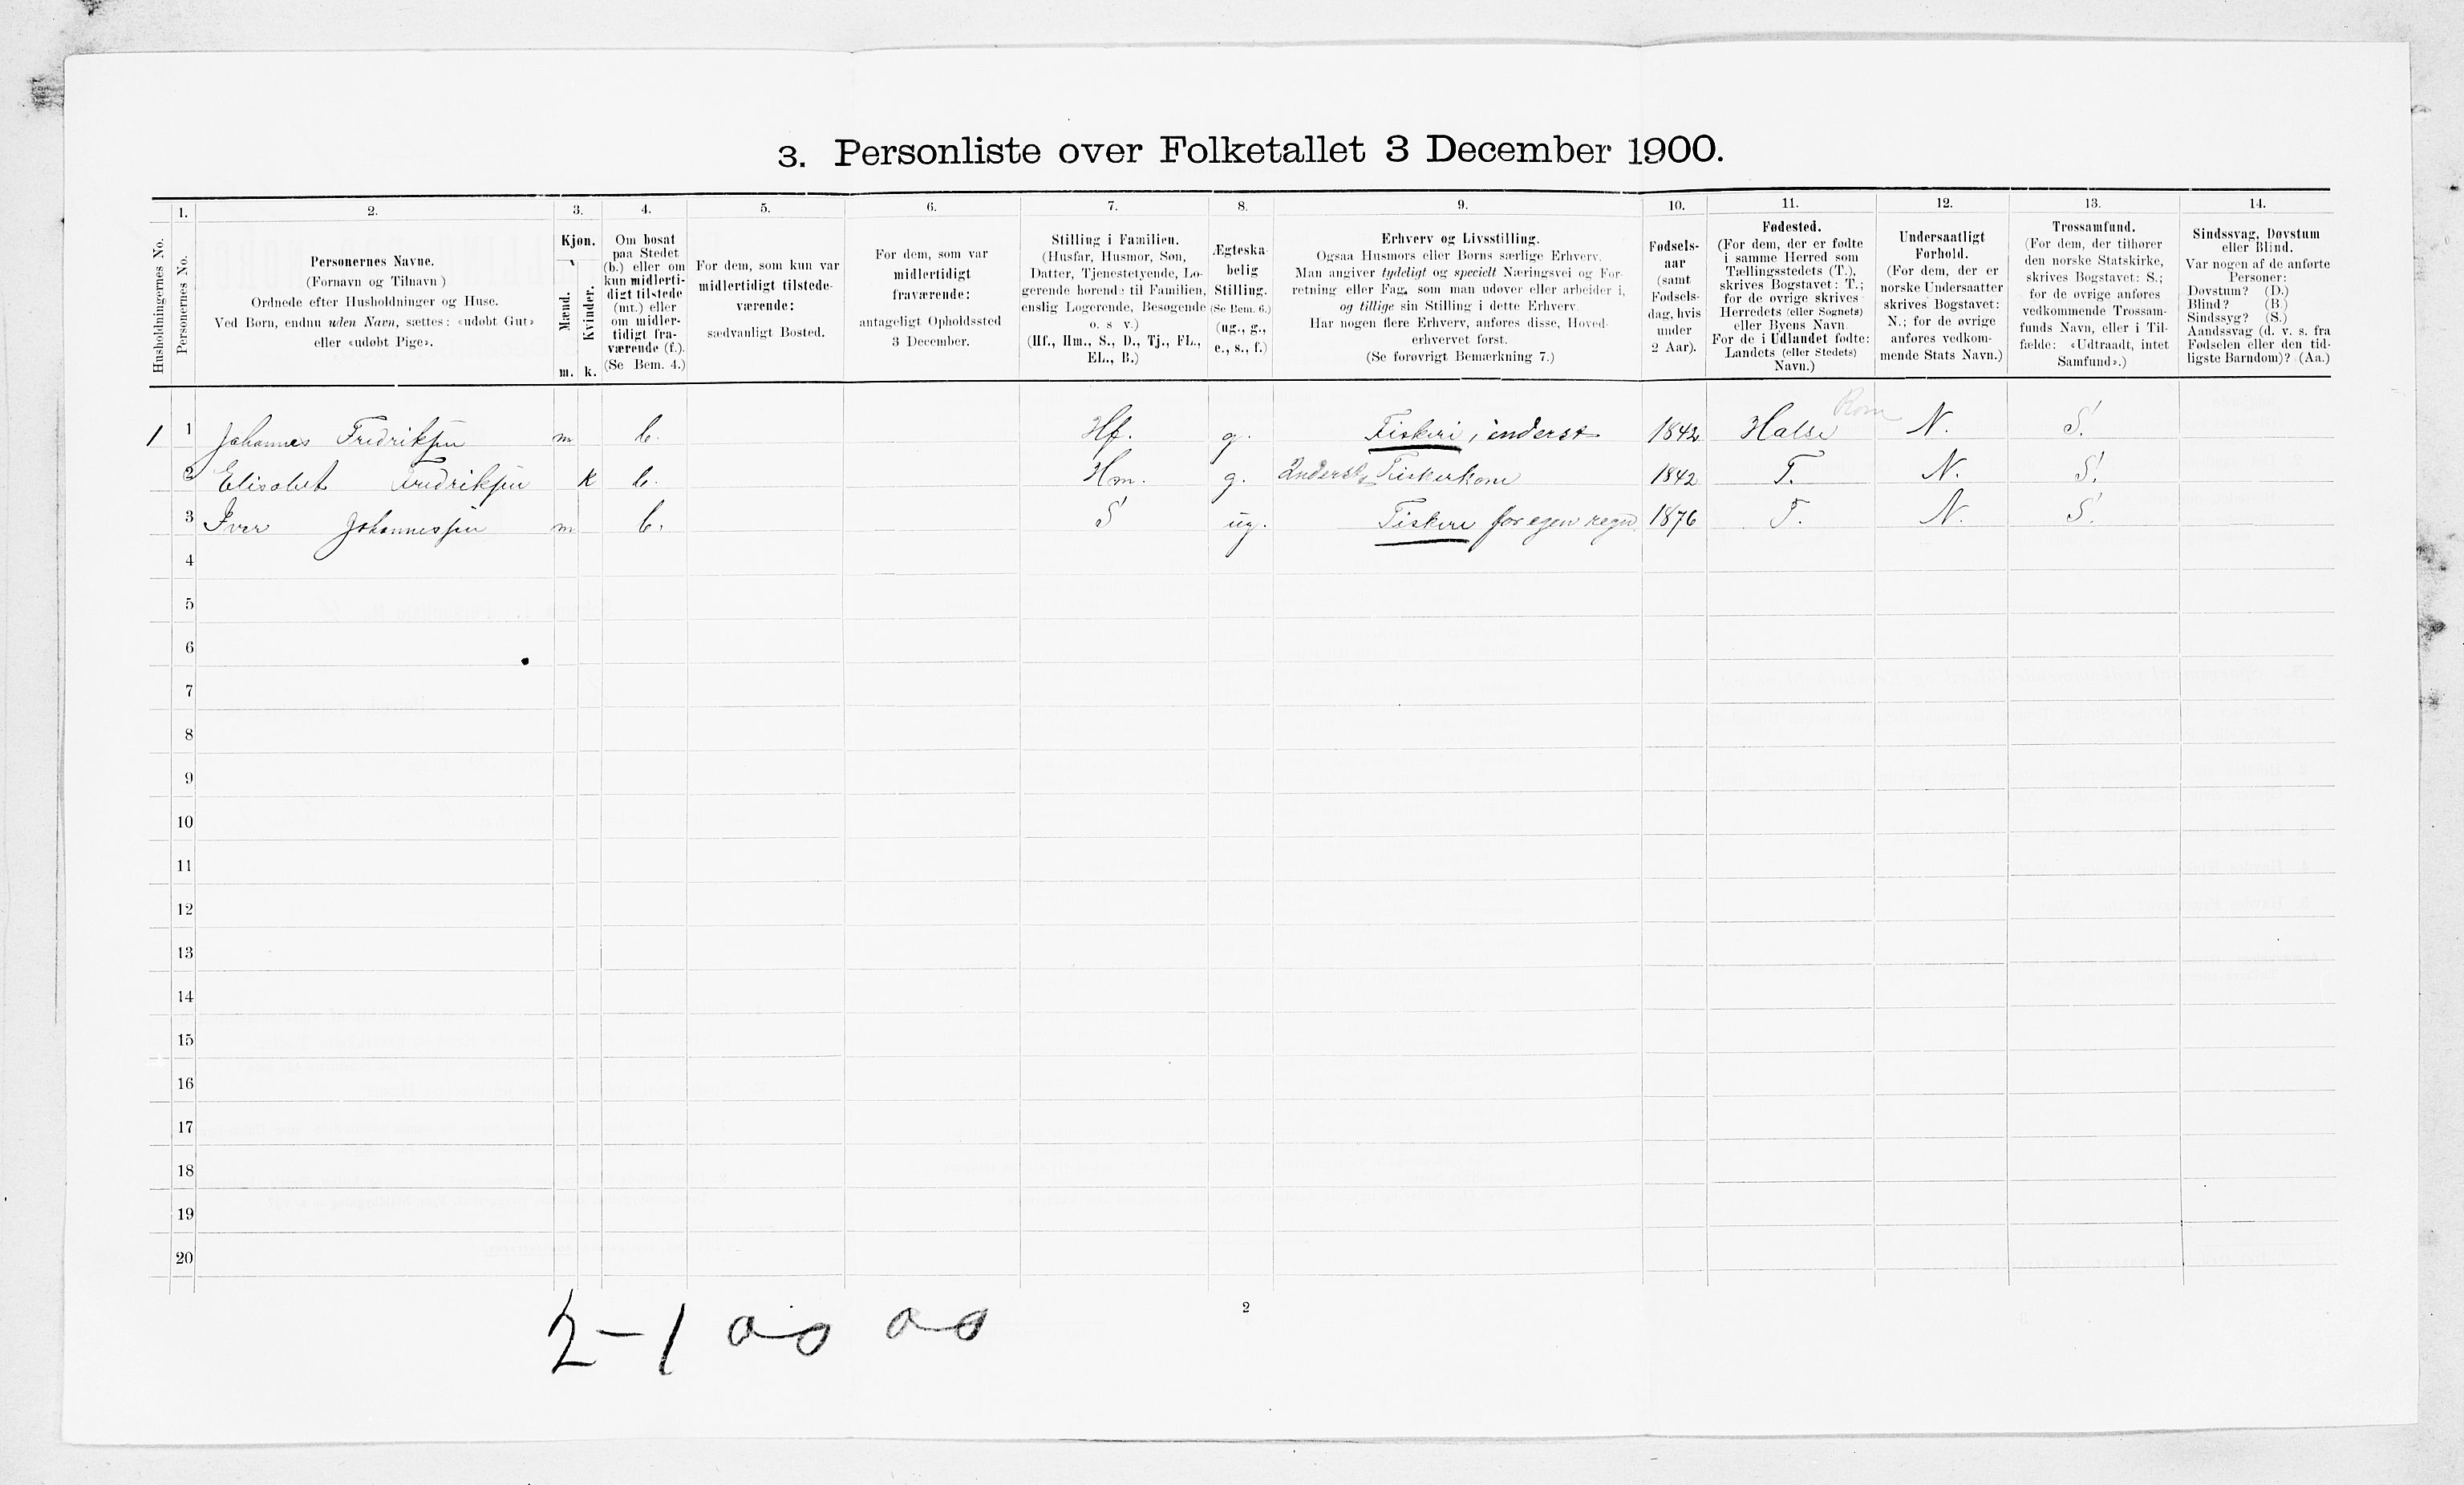 3. Personliste over Folketallet 3 December 1900.
1. 2. 3. 4. 5. 6. 7. 8. 9. 10. 11. 12. 13. 14.
Husholdningernes No.
Personernes No.
Personernes Navne.
(Fornavn og Tilnavn)
Ordnede efter Husholdninger og Huse.
Ved Børn, endnu uden Navn, sættes: «udøbt Gut»
eller «udøbt Pige».
Kjøn.
Mænd.
Kvinder.
m. k.
Om bosat
paa Stedet
(b.) eller om
kun midlerti-
digt tilstede
(mt.) eller
om midler-
tidigt fra-
værende (f.).
(Se Bem. 4.)
For dem, som kun var
midlertidigt tilstede-
værende:
sædvanligt Bosted.
For dem, som var
midlertidigt
fraværende:
antageligt Opholdssted
3 December.
Stilling i Familien.
(Husfar, Husmor, Søn,
Datter, Tjenestetyende, Lo-
gerende hørende til Familien,
enslig Logerende, Besøgende
o. s v.)
(Hf., Hm., S., D., Tj., FL.,
EL., B.)
Ægteska-
belig
Stilling.
(Se Bem. 6.)
(ug., g.,
e., s., f.)
Erhverv og Livsstilling.
Ogsaa Husmors eller Børns særlige Erhverv.
Man angiver tydeligt og specielt Næringsvei og For-
retning eller Fag, som man udøver eller arbeider i,
og tillige sin Stilling i dette Erhverv.
Har nogen flere Erhverv, anføres disse, Hoved-
erhvervet først.
(Se forøvrigt Bemærkning 7.)
Fødsels-
aar
(samt
Fødsels-
dag, hvis
under
2 Aar).
Fødested.
(For dem, der er fødte
i samme Herred som
Tællingsstedets (T.),
skrives Bogstavet: T.;
for de øvrige skrives
Herredets (eller Sognets)
eller Byens Navn.
For de i Udlandet fødte:
Landets (eller Stedets)
Navn.)
Undersaatligt
Forhold.
(For dem, der er
norske Undersaatter
skrives Bogstavet:
N.; for de øvrige
anføres vedkom-
mende Stats Navn.)
Trossamfund.
(For dem, der tilhører
den norske Statskirke,
skrives Bogstavet: S.;
for de øvrige anføres
vedkommende Trossam-
funds Navn, eller i Til-
fælde: «Udtraadt, intet
Samfund».)
Sindssvag, Døvstum
eller Blind.
Var nogen af de anførte
Personer:
Døvstum? (D.)
Blind? (B.)
Sindssyg? (S.)
Aandssvag (d. v. s. fra
Fødselen eller den tid-
ligste Barndom)? (Aa.)
Rom
1 1 Johannes Fredriksen m b. Hf. g. Fiskeri, inderst 1842 Halse N. S.
2 Elisabet Fredriksen k b. Hm. g. Inderst, Fiskerkone 1842 T. N. S.
3 Iver Johannessen m b. S ug. Fiskeri for egen regn. 1876 T. N. S.
4
5
6
7
8
9
10
11
12
13
14
15
16
17
18
19
20
2
2–1 0–0 0–0